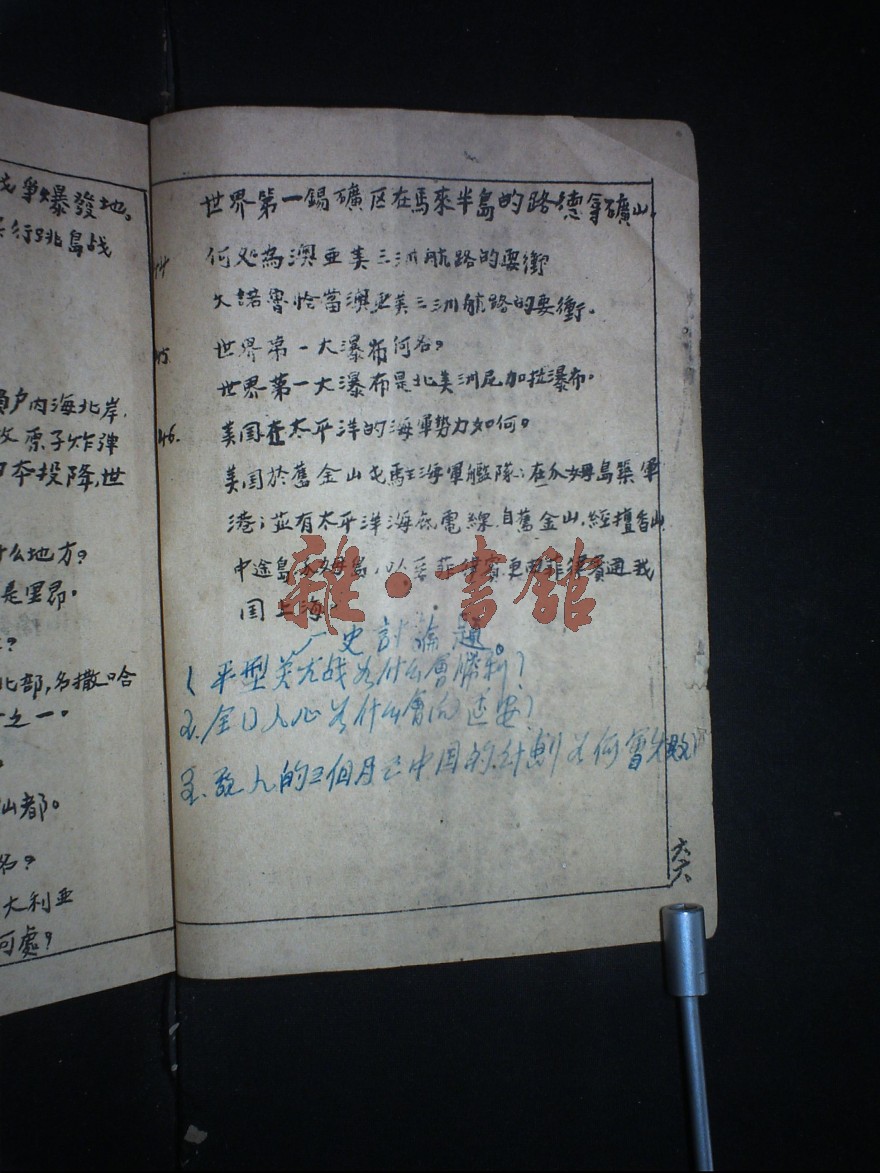 戰爭爆發地。
行跳島战
戶內海北岸,
放原子炸弹
日本投降,世
什么地方?
是里昂。
?
北部,名撒哈
之一。
。
山都。
名?
大利亚
何處?
世界第一錫礦区在馬來半島的路德拿礦山.
44
何处為澳亚美三洲航路的要衝
火諾魯恰當澳亚美三洲航路的要衝.
45.
世界第一大瀑布何名?
世界第一大瀑布是北美洲尼加拉瀑布.
46.
美国在太平洋的海軍势力如何.
美国於舊金山屯駐海軍艦隊;在瓜姆島築軍
港;並有太平洋海底電線,自舊金山,經檀香山
中途島瓜姆島,以至菲律賓更由菲律賓通我
国上海.
雜·書館
厂史討論題。
1 平型关大战为什么會勝利?
2. 全国人心为什么會向延安?
3. 敌人的三個月亡中国的計劃为何會失敗?
六六